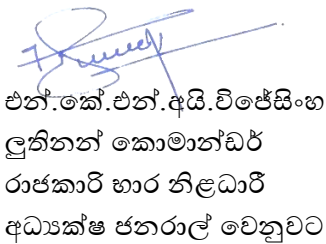 එන්.කේ.එන්.අයි.විජේසිංහ
ලුතිනන් කොමාන්ඩර්
රාජකාරී භාර නිළධාරී
අධ්‍යක්ෂ ජනරාල් වෙනුවට